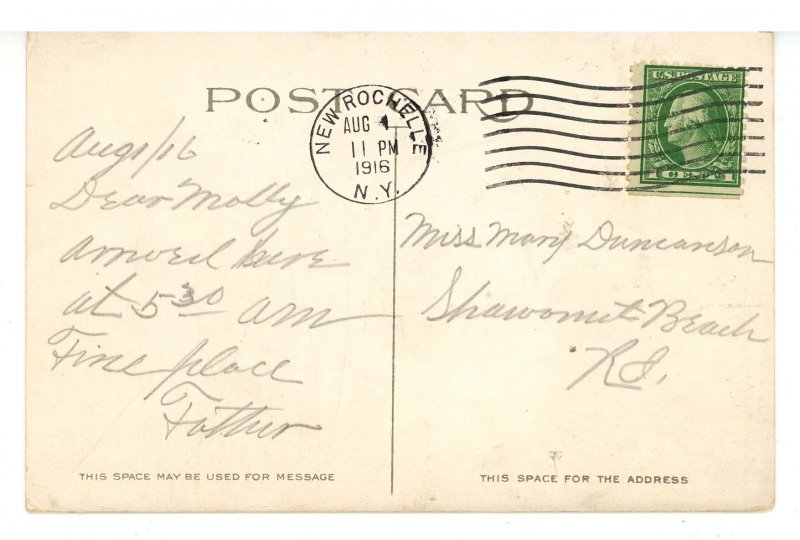 POST CARD
NEW ROCHELLE
AUG 1
11 PM
1916
N.Y.
U.S. POSTAGE
1 CENT 1
Aug 1/16
Dear Molly
arrived here
at 5 30 am
Fine place
Father
Miss Mary Duncanson
Shawomut Beach
R.I.
THIS SPACE MAY BE USED FOR MESSAGE
THIS SPACE FOR THE ADDRESS